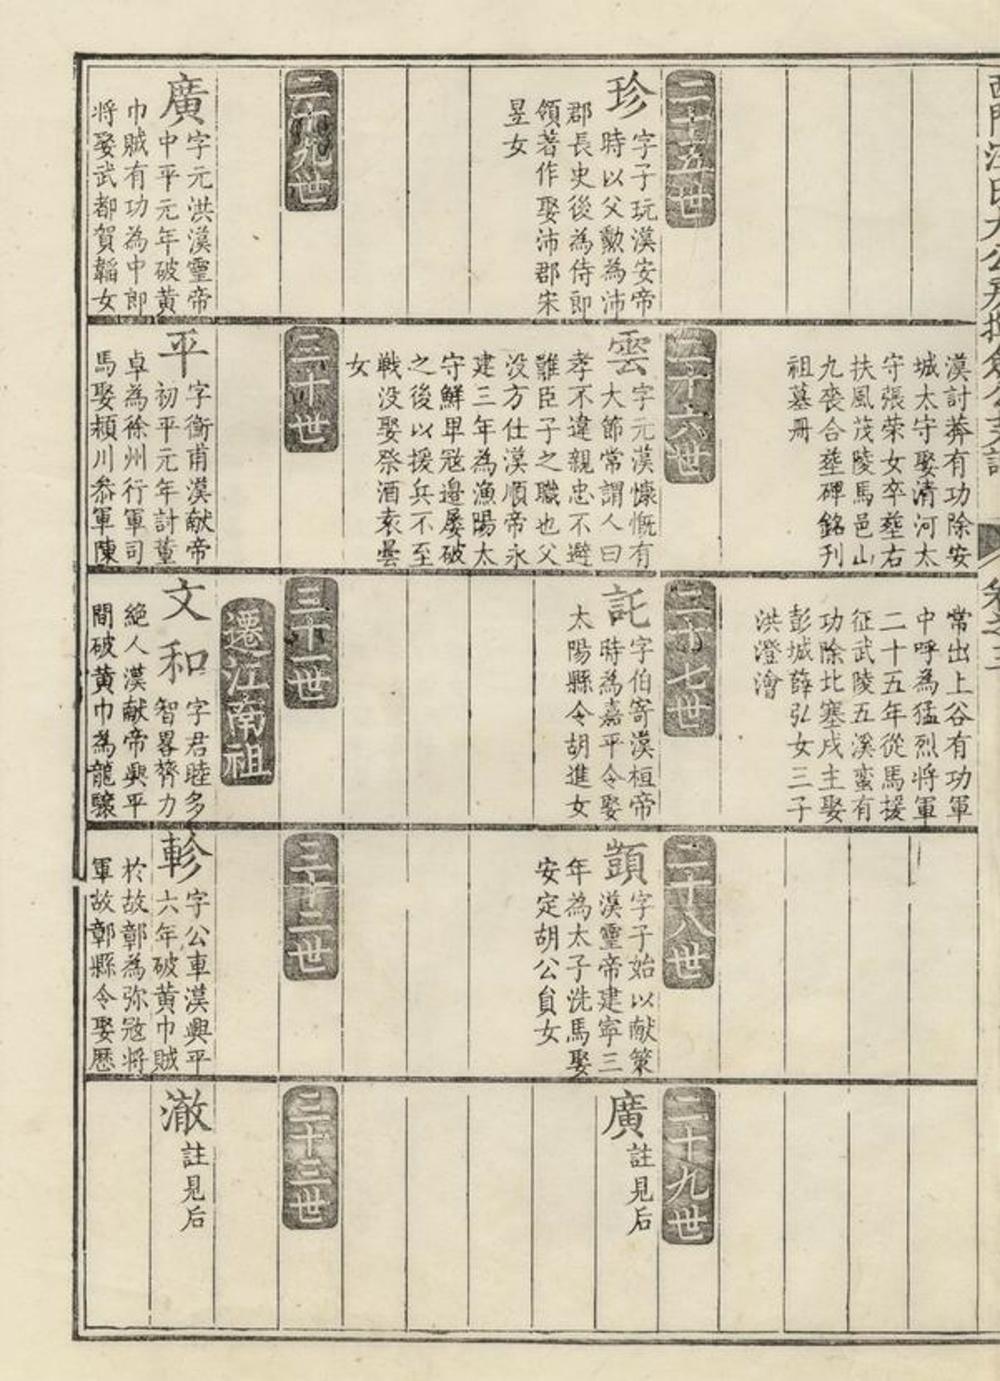 漢討莽有功除安
城太守娶清河太
守張荣女卒塟右
扶風茂陵馬邑山
九䘮合塟碑銘刋
祖墓冊
常出上谷有功軍
中呼為猛烈将軍
二十五年從馬援
征武陵五溪蛮有
功除北塞戍主娶
彭城薛弘女三子
洪澄澮
二十五世
珍
字子玩漢安帝
時以父勲為沛
郡長史後為侍郎
領著作娶沛郡宋
昱女
二十六世
雲
字元漢慷慨有
大節常謂人曰
孝不違親忠不避
難臣子之職也父
没方仕漢順帝永
建三年為漁陽太
守鮮早冦邉屡破
之後以援兵不至
戦没娶祭酒袁曇
女
二十七世
託
字伯寄漢桓帝
時為嘉平令娶
太陽縣令胡進女
二十八世
顗
字子始以献策
漢霊帝建寧三
年為太子洗馬娶
安定胡公貟女
二十九世
廣
註見后
二十九世
廣
字元洪漢霊帝
中平元年破黄
巾賊有功為中郎
将娶武都賀韜女
三十世
平
字衡甫漢献帝
初平元年討董
卓為徐州行軍司
馬娶頴川叅軍陳
三十一世
遷江南祖
文和
字君睦多
智畧膂力
絶人漢献帝興平
間破黄巾為龍驤
三十二世
軫
字公車漢興平
六年破黄巾賊
於故鄣為弥冦将
軍故鄣縣令娶歴
三十三世
澈
註見后